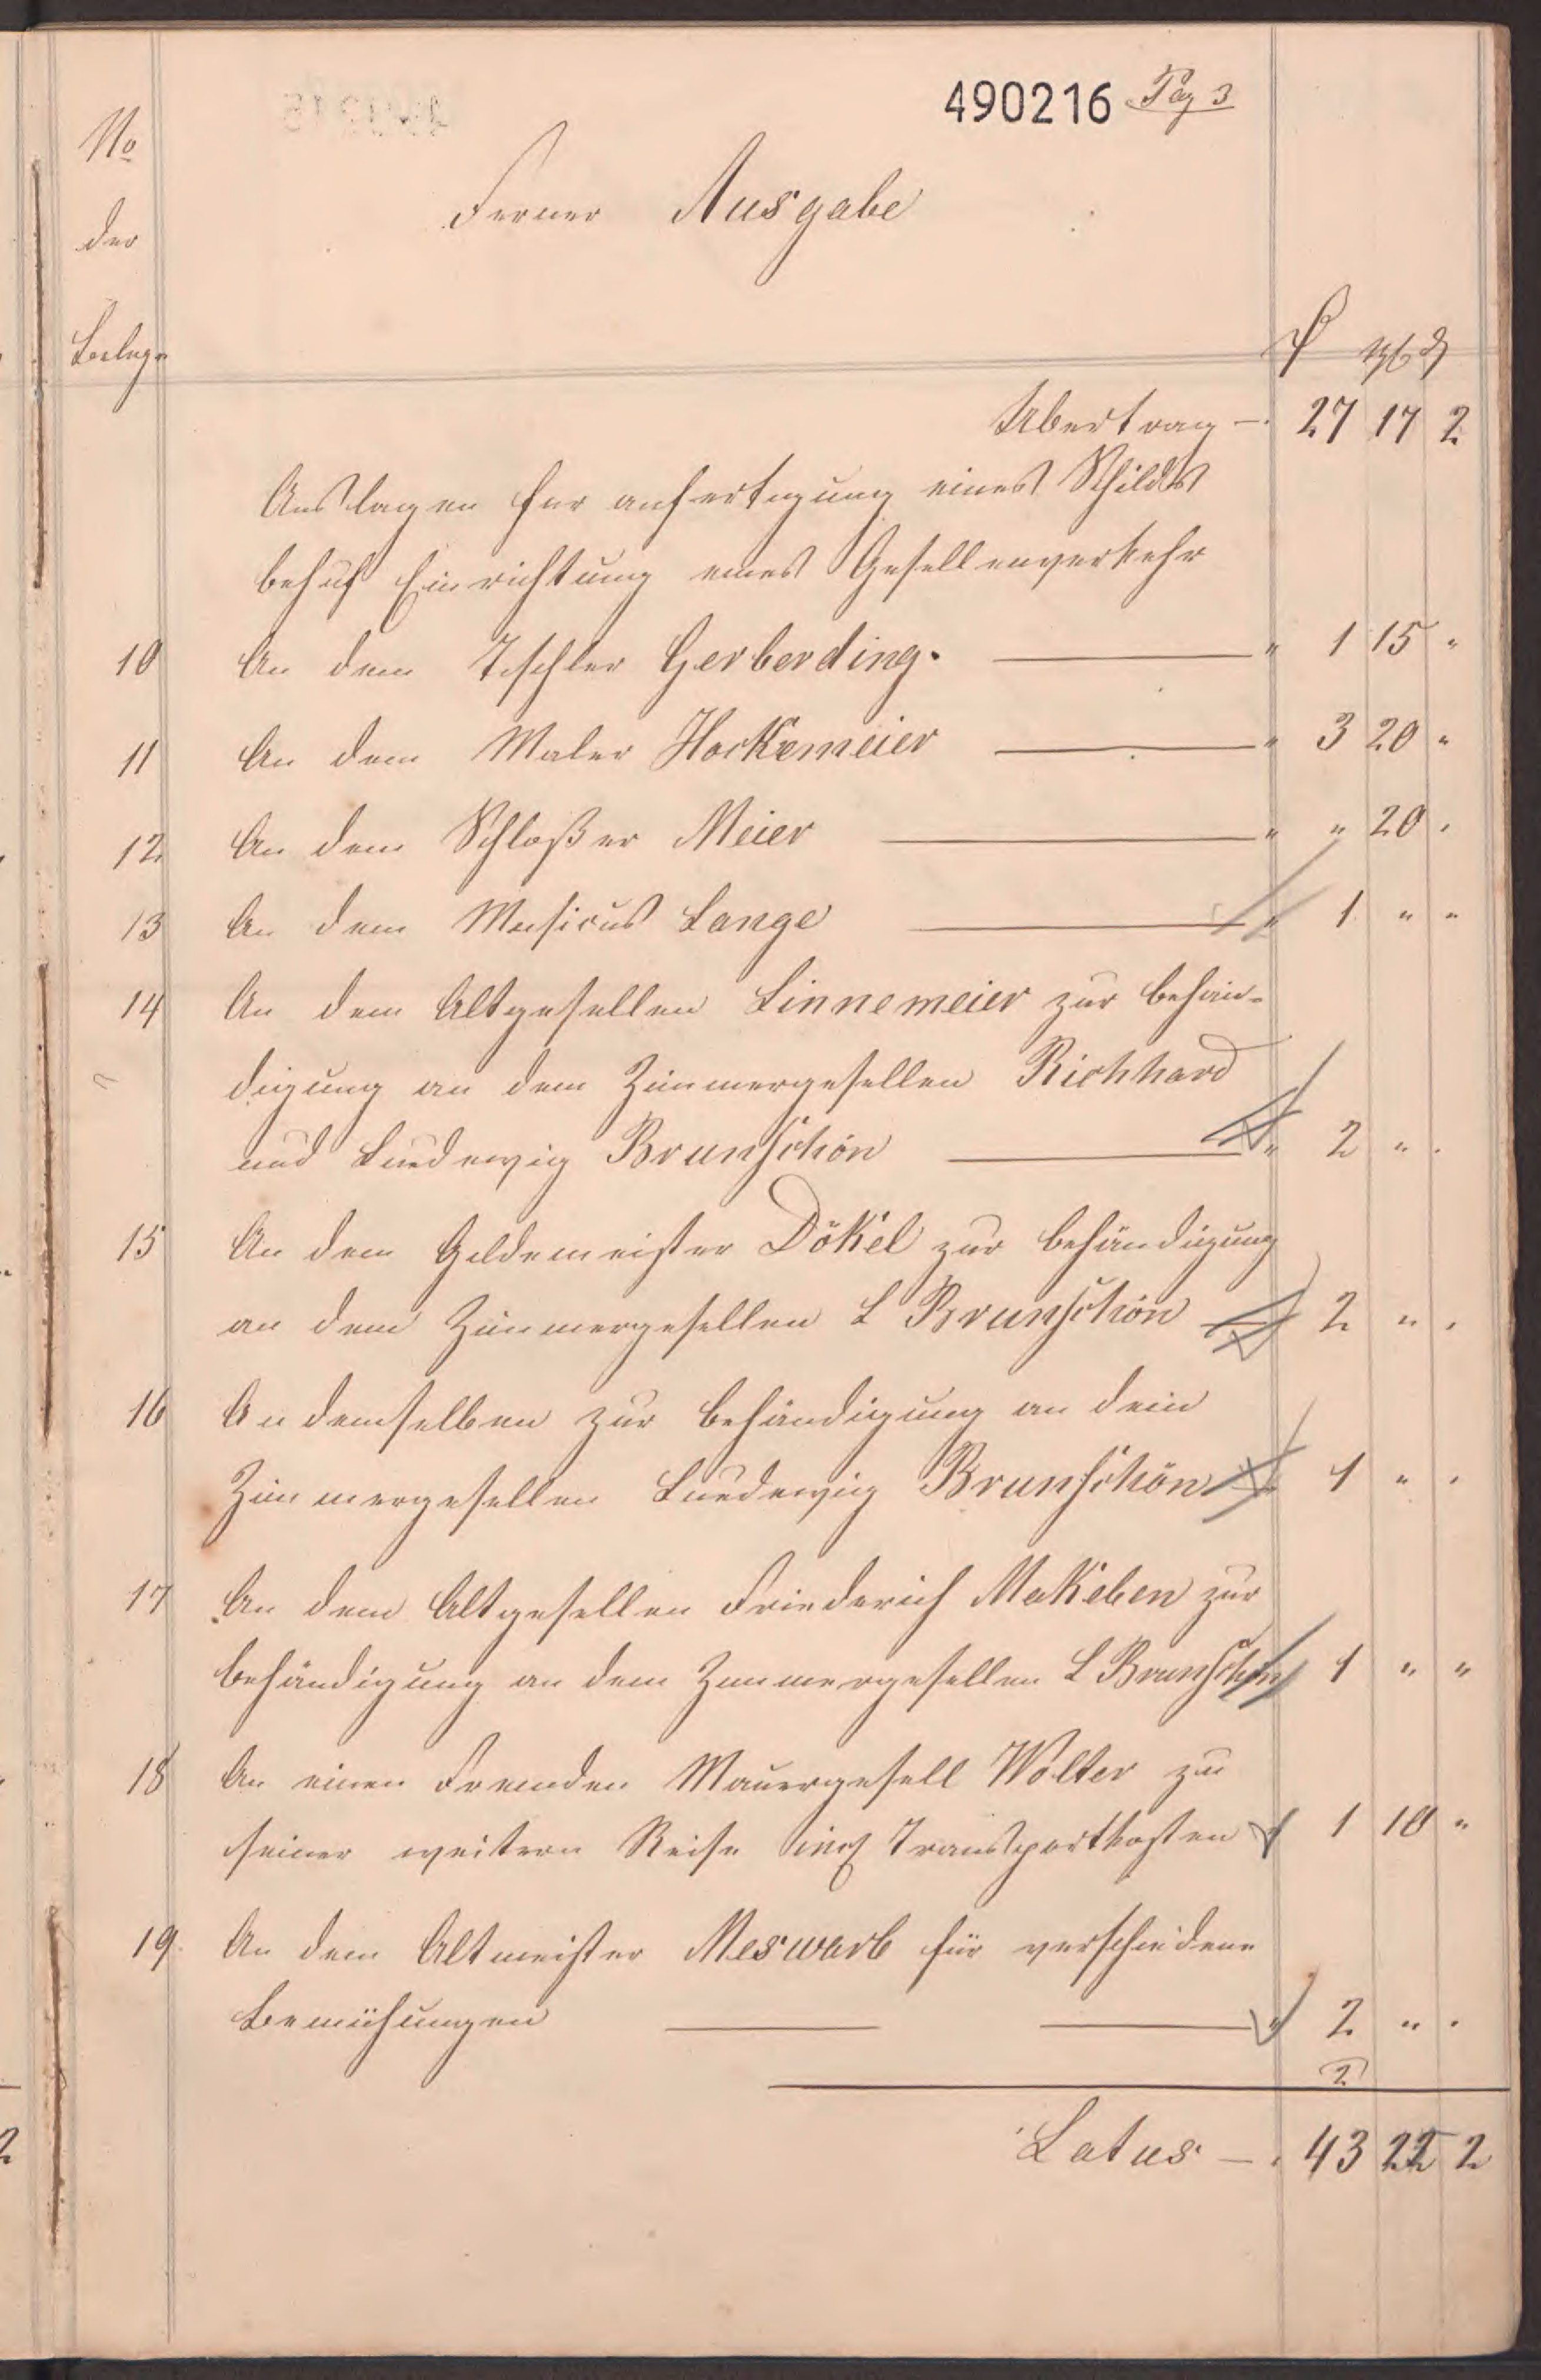 490216 Pag 3
No
der
Ferner Ausgabe
Belege
Ubertrag — 27 17 2
Auslagen für anfertigung eines Schildes
behuf Einrichtung eines Gesellenverkehr
10 An dem Tischler Gerberding. — " 1 15 "
11 An dem Maler Hockemeier — " 3 20 "
12 An dem Schloßer Meier — " " 20 "
13 An dem Musicus Lange — " 1 " "
14 An dem Altgesellen Linnemeier zur behän-
digung an dem Zimmergesellen Richhard
und Luedewig Brunschön — " 2 " "
15 An dem Gildemeister Dökel zur behändigung
an dem Zimmergesellen L Brunschön — 2 " "
16 An demselben zur behändigung an dem
Zimmergesellen Luedewig Brunschön " 1 " "
17 An dem Altgesellen Friederich Makeben zur
behändigung an dem Zimmergesellen L Brunschön 1 " "
18 An einen Fremden Mauergesell Wolter zu
seiner weitern Reise incl Transportkosten " 1 10 "
19 An dem Altmeister Meswarb für verschiedene
Bemühungen — — " 2 " "
2
Latus — 43 22 2